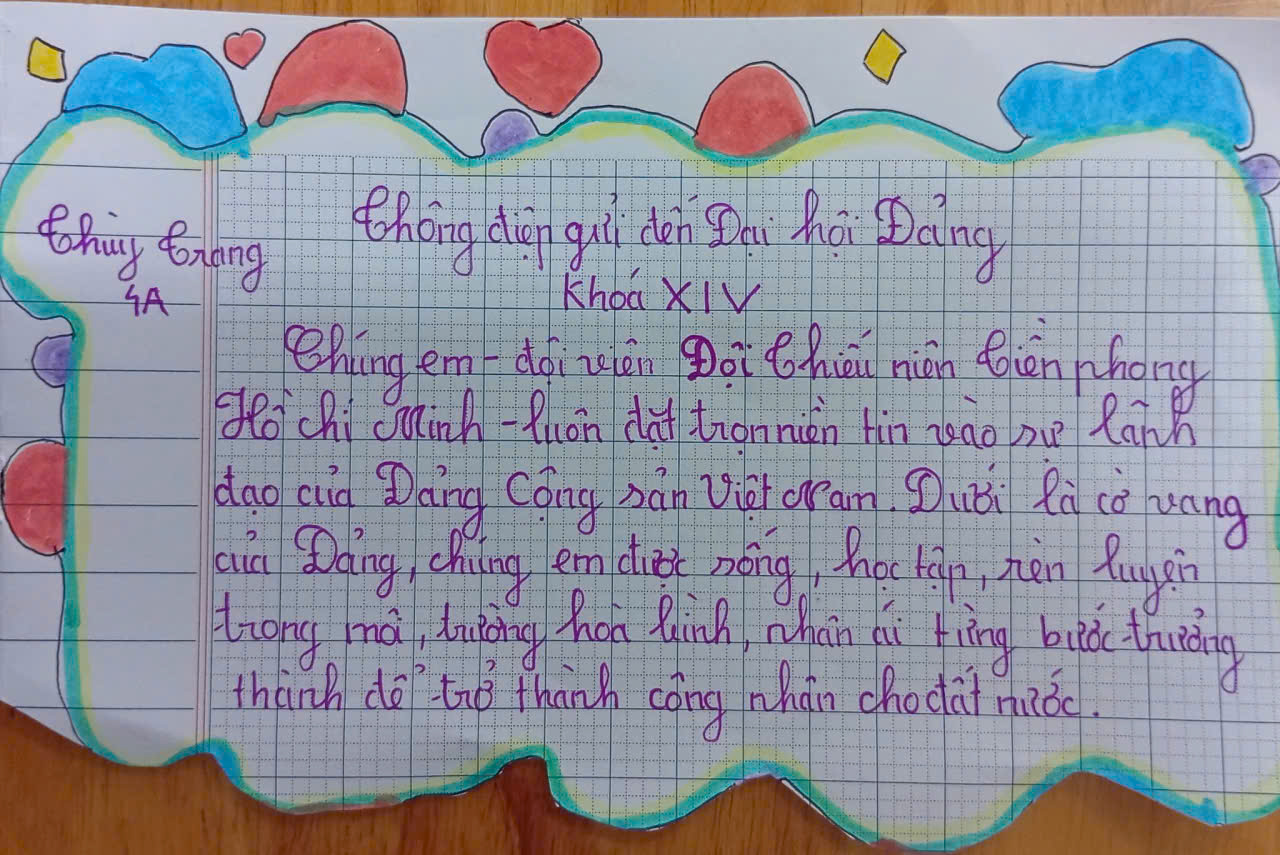 Thùy Trang
4A
Thông điệp gửi đến Đại hội Đảng
Khoá XIV
Chúng em - đội viên Đội Thiếu niên Tiền phong
Hồ Chí Minh - luôn đặt trọn niền tin vào sự lãnh
đạo của Đảng Cộng sản Việt Nam. Dưới là cờ vang
của Đảng, chúng em được sống, học tập, rèn luyện
trong môi, trường hoà bình, nhân ái từng bước trưởng
thành để trở thành công nhân cho đất nước.